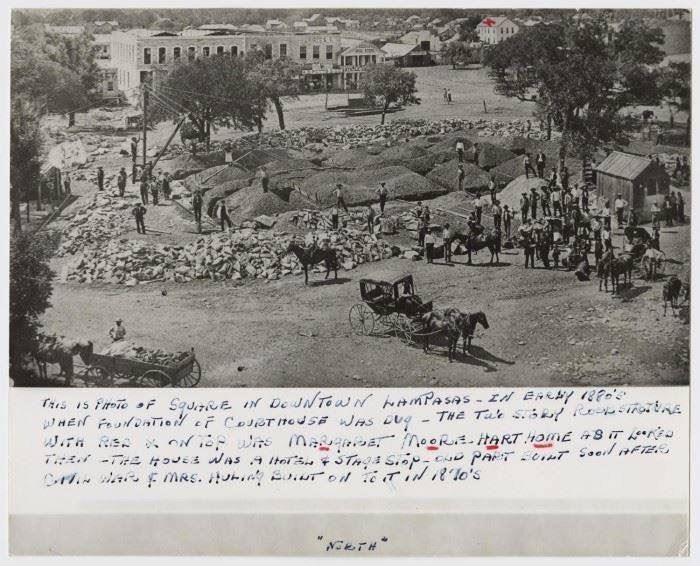 THIS IS PHOTO OF SQUARE IN DOWNTOWN LAMPASAS - IN EARLY 1880'S
WHEN FOUNDATION OF COURTHOUSE WAS DUG - THE TWO STORY ROCK STRUCTURE
WITH RED X ON TOP WAS MARGARET MOORE HART HOME AS IT LOOKED
THEN - THE HOUSE WAS A HOTEL & STAGE STOP - OLD PART BUILT SOON AFTER
CIVIL WAR & MRS. HULING BUILT ON TO IT IN 1870'S
"NORTH"